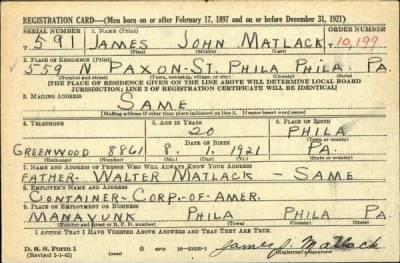 REGISTRATION CARD—(Men born on or after February 17, 1897 and on or before December 31, 1921)
SERIAL NUMBER 1. NAME (Print) ORDER NUMBER
T 591 JAMES JOHN MATLACK T 10,199
(First) (Middle) (Last)
2. PLACE OF RESIDENCE (Print)
559 N PAXON-ST. PHILA PHILA. PA.
(Number and street) (Town, township, village, or city) (County) (State)
[THE PLACE OF RESIDENCE GIVEN ON THE LINE ABOVE WILL DETERMINE LOCAL BOARD
JURISDICTION; LINE 2 OF REGISTRATION CERTIFICATE WILL BE IDENTICAL]
3. MAILING ADDRESS
SAME
[Mailing address if other than place indicated on line 2. If same insert word same]
4. TELEPHONE 5. AGE IN YEARS 6. PLACE OF BIRTH
20 PHILA
DATE OF BIRTH (Town or county)
GREENWOOD 8861 8. 1. 1921 PA.
(Exchange) (Number) (Mo.) (Day) (Yr.) (State or country)
7. NAME AND ADDRESS OF PERSON WHO WILL ALWAYS KNOW YOUR ADDRESS
FATHER. WALTER MATLACK - SAME
8. EMPLOYER'S NAME AND ADDRESS
CONTAINER-CORP.-OF-AMER.
9. PLACE OF EMPLOYMENT OR BUSINESS
MANAYUNK PHILA PHILA PA
(Number and street or R. F. D. number) (Town) (County) (State)
I AFFIRM THAT I HAVE VERIFIED ABOVE ANSWERS AND THAT THEY ARE TRUE.
D. S. S. Form 1
(Revised 1-1-42) (over) GPO James J. Matlack
(Registrant's signature)